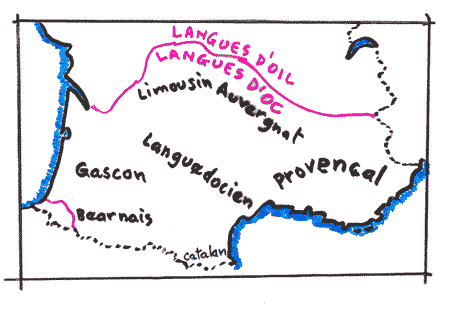 LANGUES D'OIL
LANGUES D'OC
Limousin
Auvergnat
Languedocien
Provencal
Gascon
Bearnais
catalan